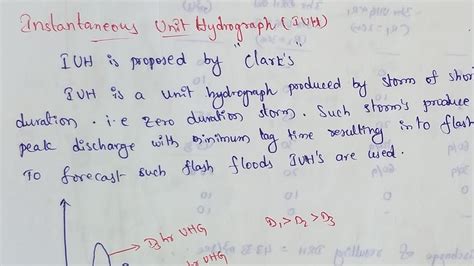 Instantaneous Unit Hydrograph (IUH)
IUH is proposed by "Clark's"
IUH is a unit hydrograph produced by storm of shor
duration. i.e zero duration storm. Such storm's produce
peak discharge with minimum lag time resulting in to flash
To forecast such flash floods IUH's are used.
D3 hr UHG
D1 > D2 > D3